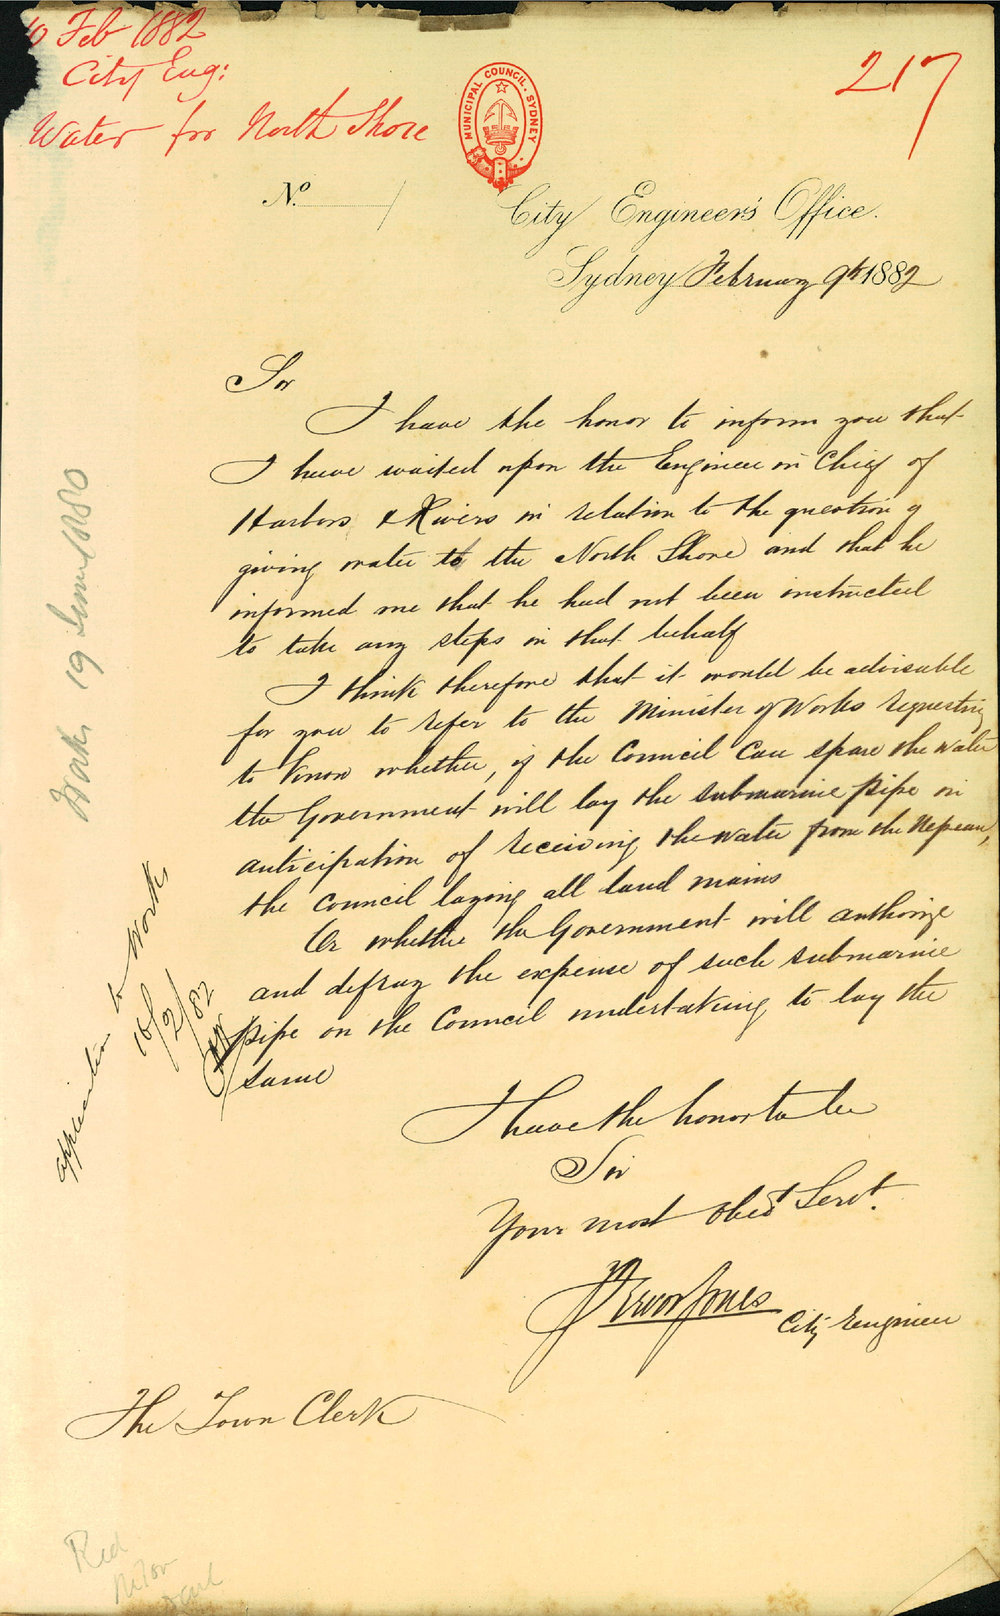 10 Feb 1882
City Eng:
Water for North Shore
217
MUNICIPAL COUNCIL. SYDNEY
No.
City Engineer's Office.
Sydney February 9th 1882
Sir
I have the honor to inform you that
I have waited upon the Engineer in Chief of
Harbors & Rivers in relation to the question of
giving water to the North Shore and that he
informed me that he had not been instructed
to take any steps in that behalf
I think therefore that it would be advisable
for you to refer to the Minister of Works requesting
to know whether, if the Council can spare the water
the Government will lay the submarine pipe in
anticipation of receiving the water from the Nepean,
the Council laying all land mains
Or whether the Government will authorize
and defray the expense of such submarine
pipe on the Council undertaking to lay the
same
I have the honor to be
Sir
Your most obedt Servt.
Trevor Jones
City Engineer
The Town Clerk
Works 19
application to Works
16/2/82
Red